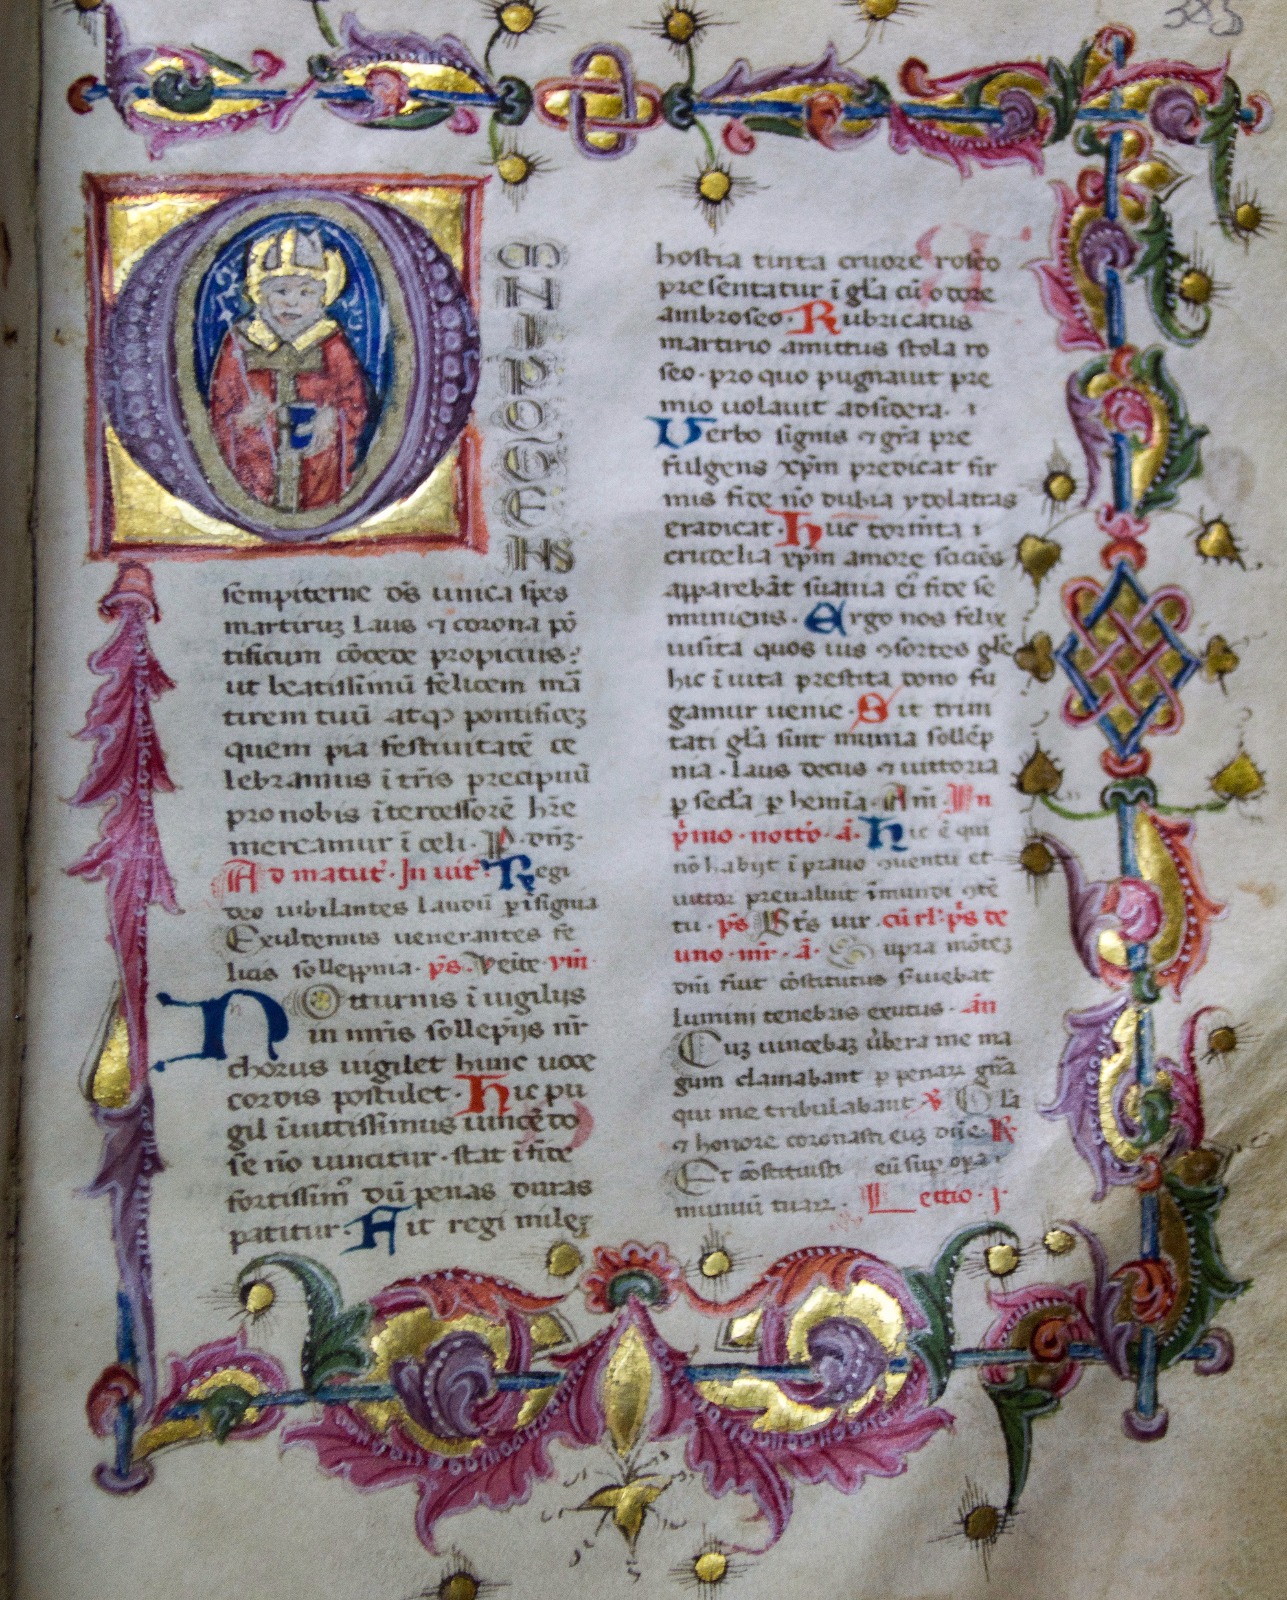 345
O
M
N
I
P
O
T
E
NS
sempiterne ds̄ unica spes
martiruꝫ laus ⁊ corona pō
tificum cōcede propicius:
ut beatissimū felicem mā
tirem tuū atqꝫ pontificeꝫ
quem pia festiuitatē ce
lebramus ī tr̄is precipuū
pro nobis ītercessorē hr̄e
mereamur ī celi. P. dn̄ꝫ.
Ad matut̄. In uit̄. Regi
deo iubilantes laudū ꝑ īsignia
Exultemus uenerantes fe
licis sollepnia. p̄s. Ueite. ym̄.
Notturnis ī uigilijs
in mr̄is sollepijs nr̄
chorus uigilet hunc uoce
cordis postulet. Hic pu
gil īuittissimus uincēdo
se nō uincitur. stat ī fide
fortissim⁹ dū penas duras
patitur. Ait regi mileꝫ
hostia tinta cruore roseo
presentatur ī gl̄a cū odore
ambroseo. Rubricatus
martirio amittus stola ro
seo. pro quo pugnauit pre
mio uolauit ad sidera.
Verbo signis ⁊ gr̄a pre
fulgens xp̄m predicat fir
mis fide nō dubia ydolatras
eradicat. Huc torm̄ta
crudelia xp̄m amore sciēs
apparebāt suauia ei fide se
muniens. Ergo nos felix
uisita quos uis ꝯsortes gl̄e
hic ī uita prestita dono fu
gamur uenie. Sit trini
tati gl̄a sint munia sollēp
nia. laus decus ⁊ uittoria
ꝑ secl̄a ꝑ hemīa. Am̄. In
p̄mo. nott̄o. a̅. Hic ē qui
nō habijt ī prauo ꝯuentu et
uittor preualuit īmundi ꝯtē
tu. p̄s. Bt̄s uir. cū rl̄. p̄s de
uno. mr̄. a̅. Supra mōteꝫ
dn̄i fiuit cōstitutus fiuebat
lumini tenebris exutus. an̄
Cuꝫ uincebaꝫ ūbera me ma
gum clamabant ꝑ penaꝝ gn̄a
qui me tribulabant. ℣. Gl̄a
⁊ honore coronasti euꝫ dn̄e. ℟.
Et cōstituisti eū suꝑ oꝑa
manuū tuaꝝ. Lettio. j.